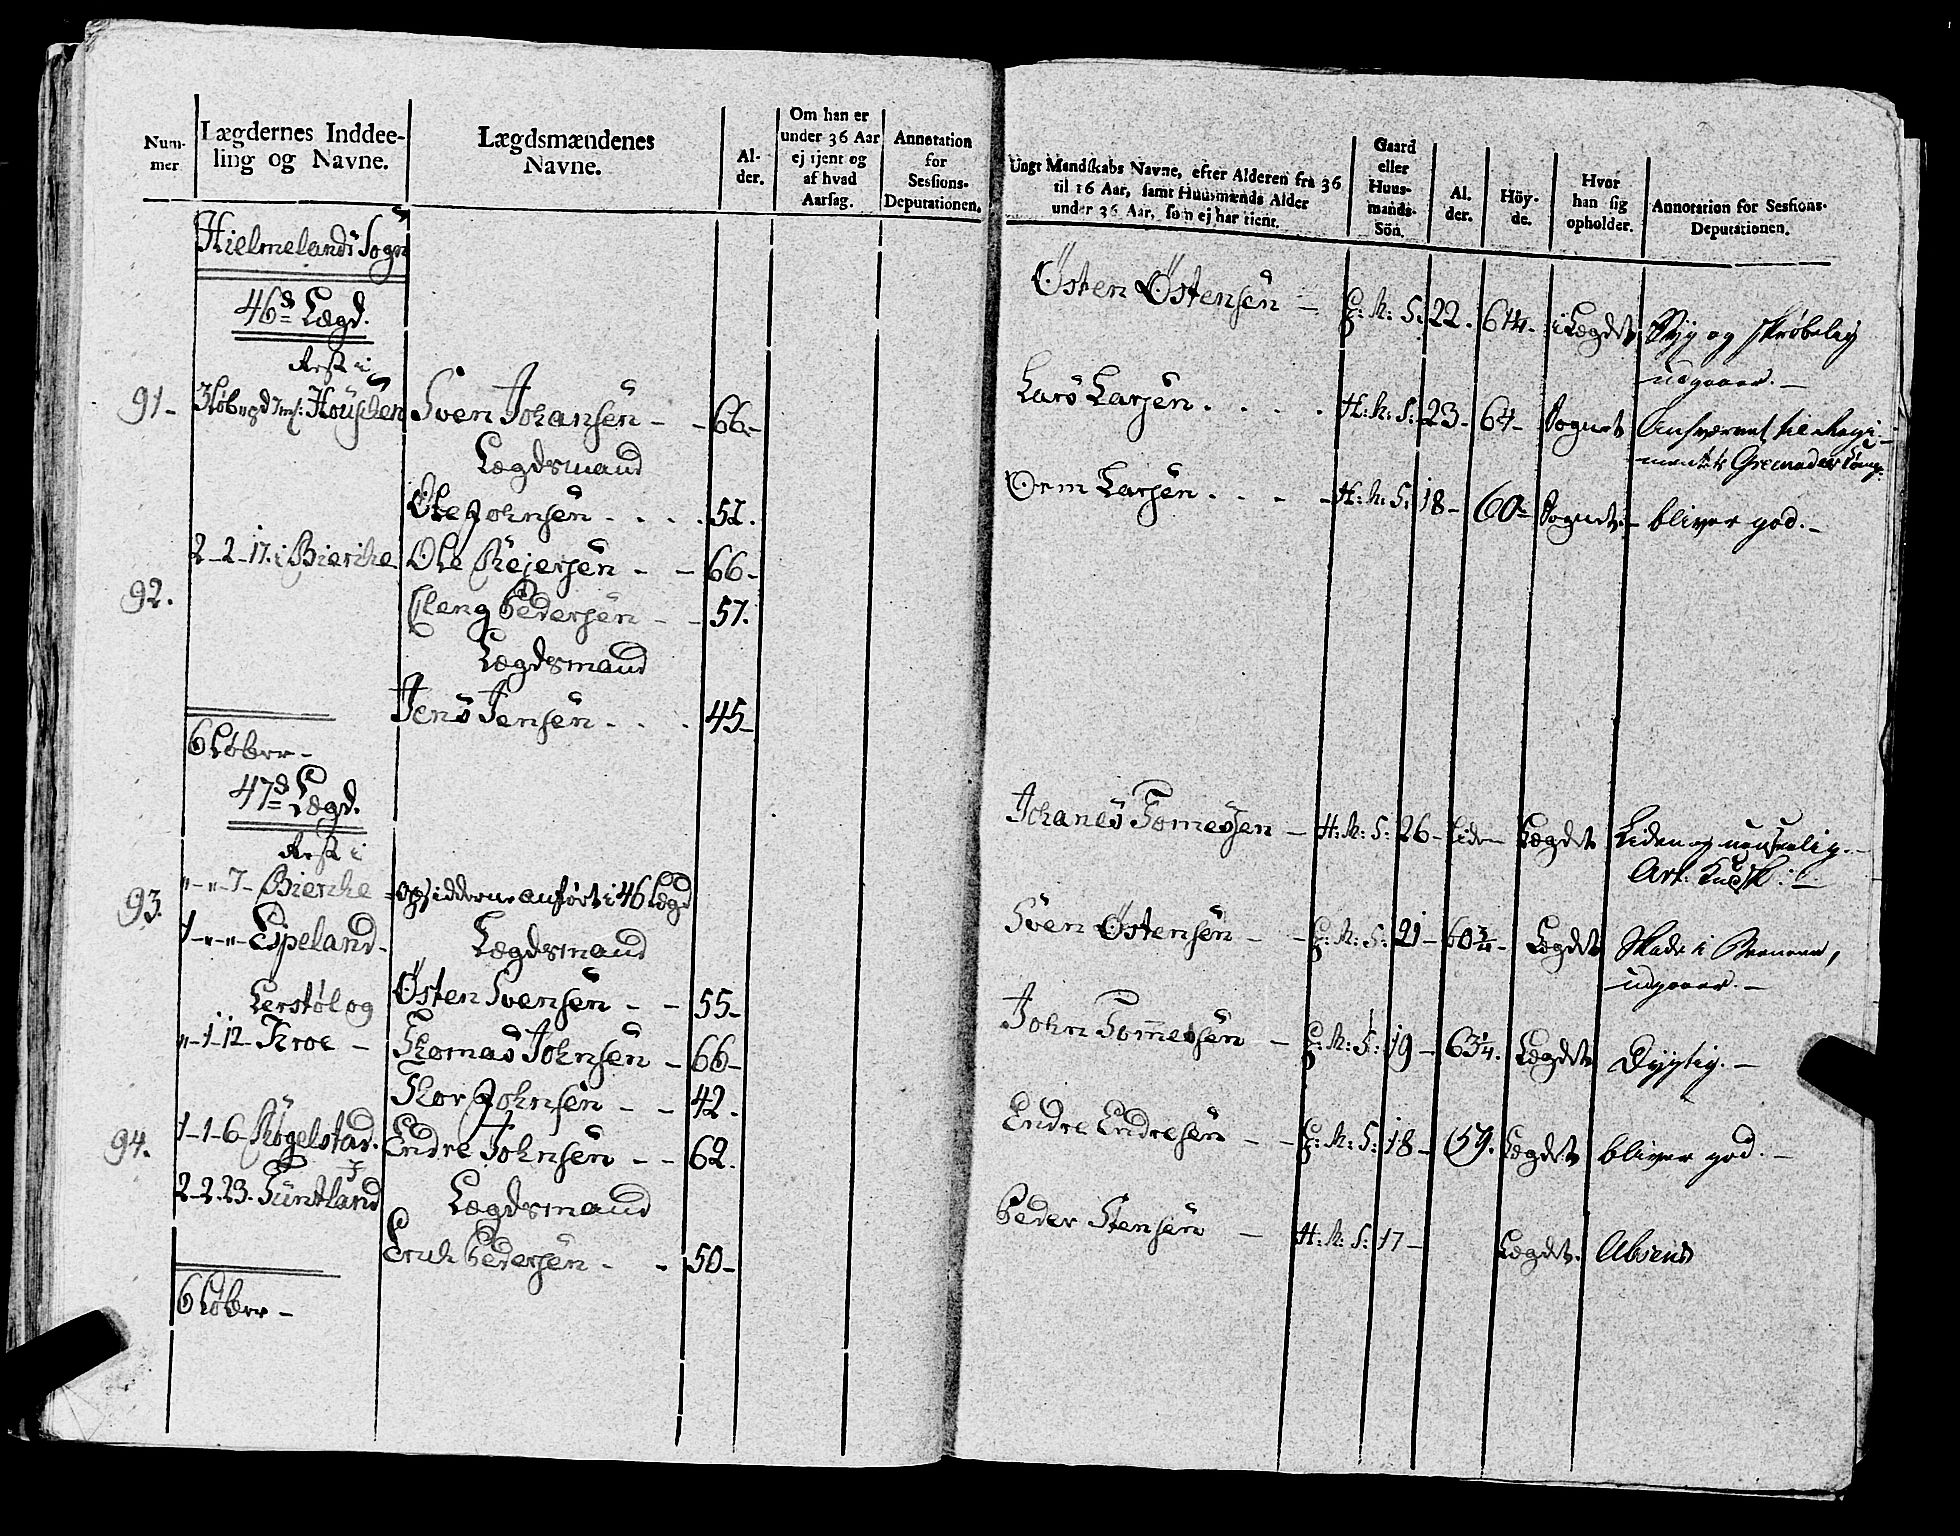 Num-
mer
Lægdernes Inddee-
ling og Navne.
Lægdsmændenes
Navne.
Al-
der.
Om han er
under 36 Aar
ej tjent og
af hvad
Aarsag.
Annotation
for
Sessions-
Deputationen.
Hielmelands Sogn
46d Lægd.
Rest i
91- 3 Løb Houschen Sven Johansen - - 66-
Lægdsmand
Ole Johnsen - . . . 51.
2-2-17. i Bierche Ole Rejersen - - 66-
92. Pedersen - - 57.
Lægdsmand
Jens Jensen - . . . 45-
6 Løber -
47d Lægd.
Rest i
93. "-"-7- Bierche Opsidderne anført i 46 Lægd
1-"-"- Espeland - Lægdsmand
Lerstøl og Østen Svensen - - 55-
"-1-12- Kroe - Thomas Johnsen - 66-
Thor Johnsen - - 42.
94. 1-1-6- Røgelstad. Endre Johnsen - - 62.
2-2.23. Funtland Lægdsmand
Erich Pedersen - - 50-
6 Løber -
Ungt Mandskabs Navne, efter Alderen fra 36
til 16 Aar, samt Huusmænds Alder
under 36 Aar, som ej har tient.
Gaard
eller
Huus-
mands-
Sön.
Al.
der.
Höy-
de.
Hvor
han sig
opholder.
Annotation for Sessions-
Deputationen.
Østen Østensen - G: M: S: 22. 61¼. i Lægdet Syg og skrøbelig
udgaaer. -
Lars Larsen . . . . H: M: S: 23- 64- Sognet til Regi-
mentets Grenadeer Comp:
Orm Larsen . . - - H: M: S: 18- 60- Sognet. - bliver god. -
Johanes Tomessen - H: M: S: 26- Liden Lægdet Liden og
Sven Østensen - - G: M: S: 21- 60¾- Lægdet Skade i
udgaaer. -
John Tommessen - G: M: S: 19- 63¼. Lægdet Dygtig. -
Endre Endresen - - G: M: S: 18- 59. Lægdet bliver god. -
Peder Stensen - H: M: S: 17- Lægdet. Absend